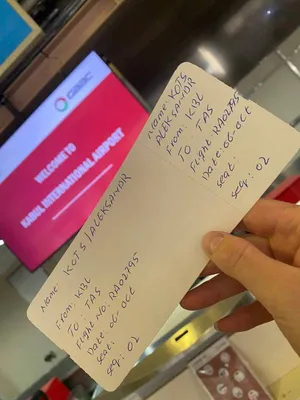 GAAC
WELCOME TO
KABUL INTERNATIONAL AIRPORT
Name: KOTS/ALEKSANDR
From: KBL
To: TAS
Flight No. RA02795
Date: 06-Oct
Seat:
seq: 02
Name: KOTS
ALEKSANDR
From: KBL
TO: TAS
Flight RA02795
Date: 06-Oct
seat:
seq: 02